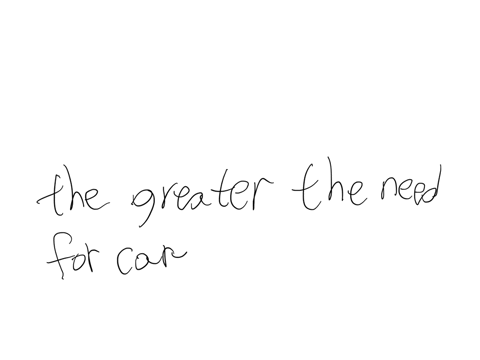 the greater the need
for car